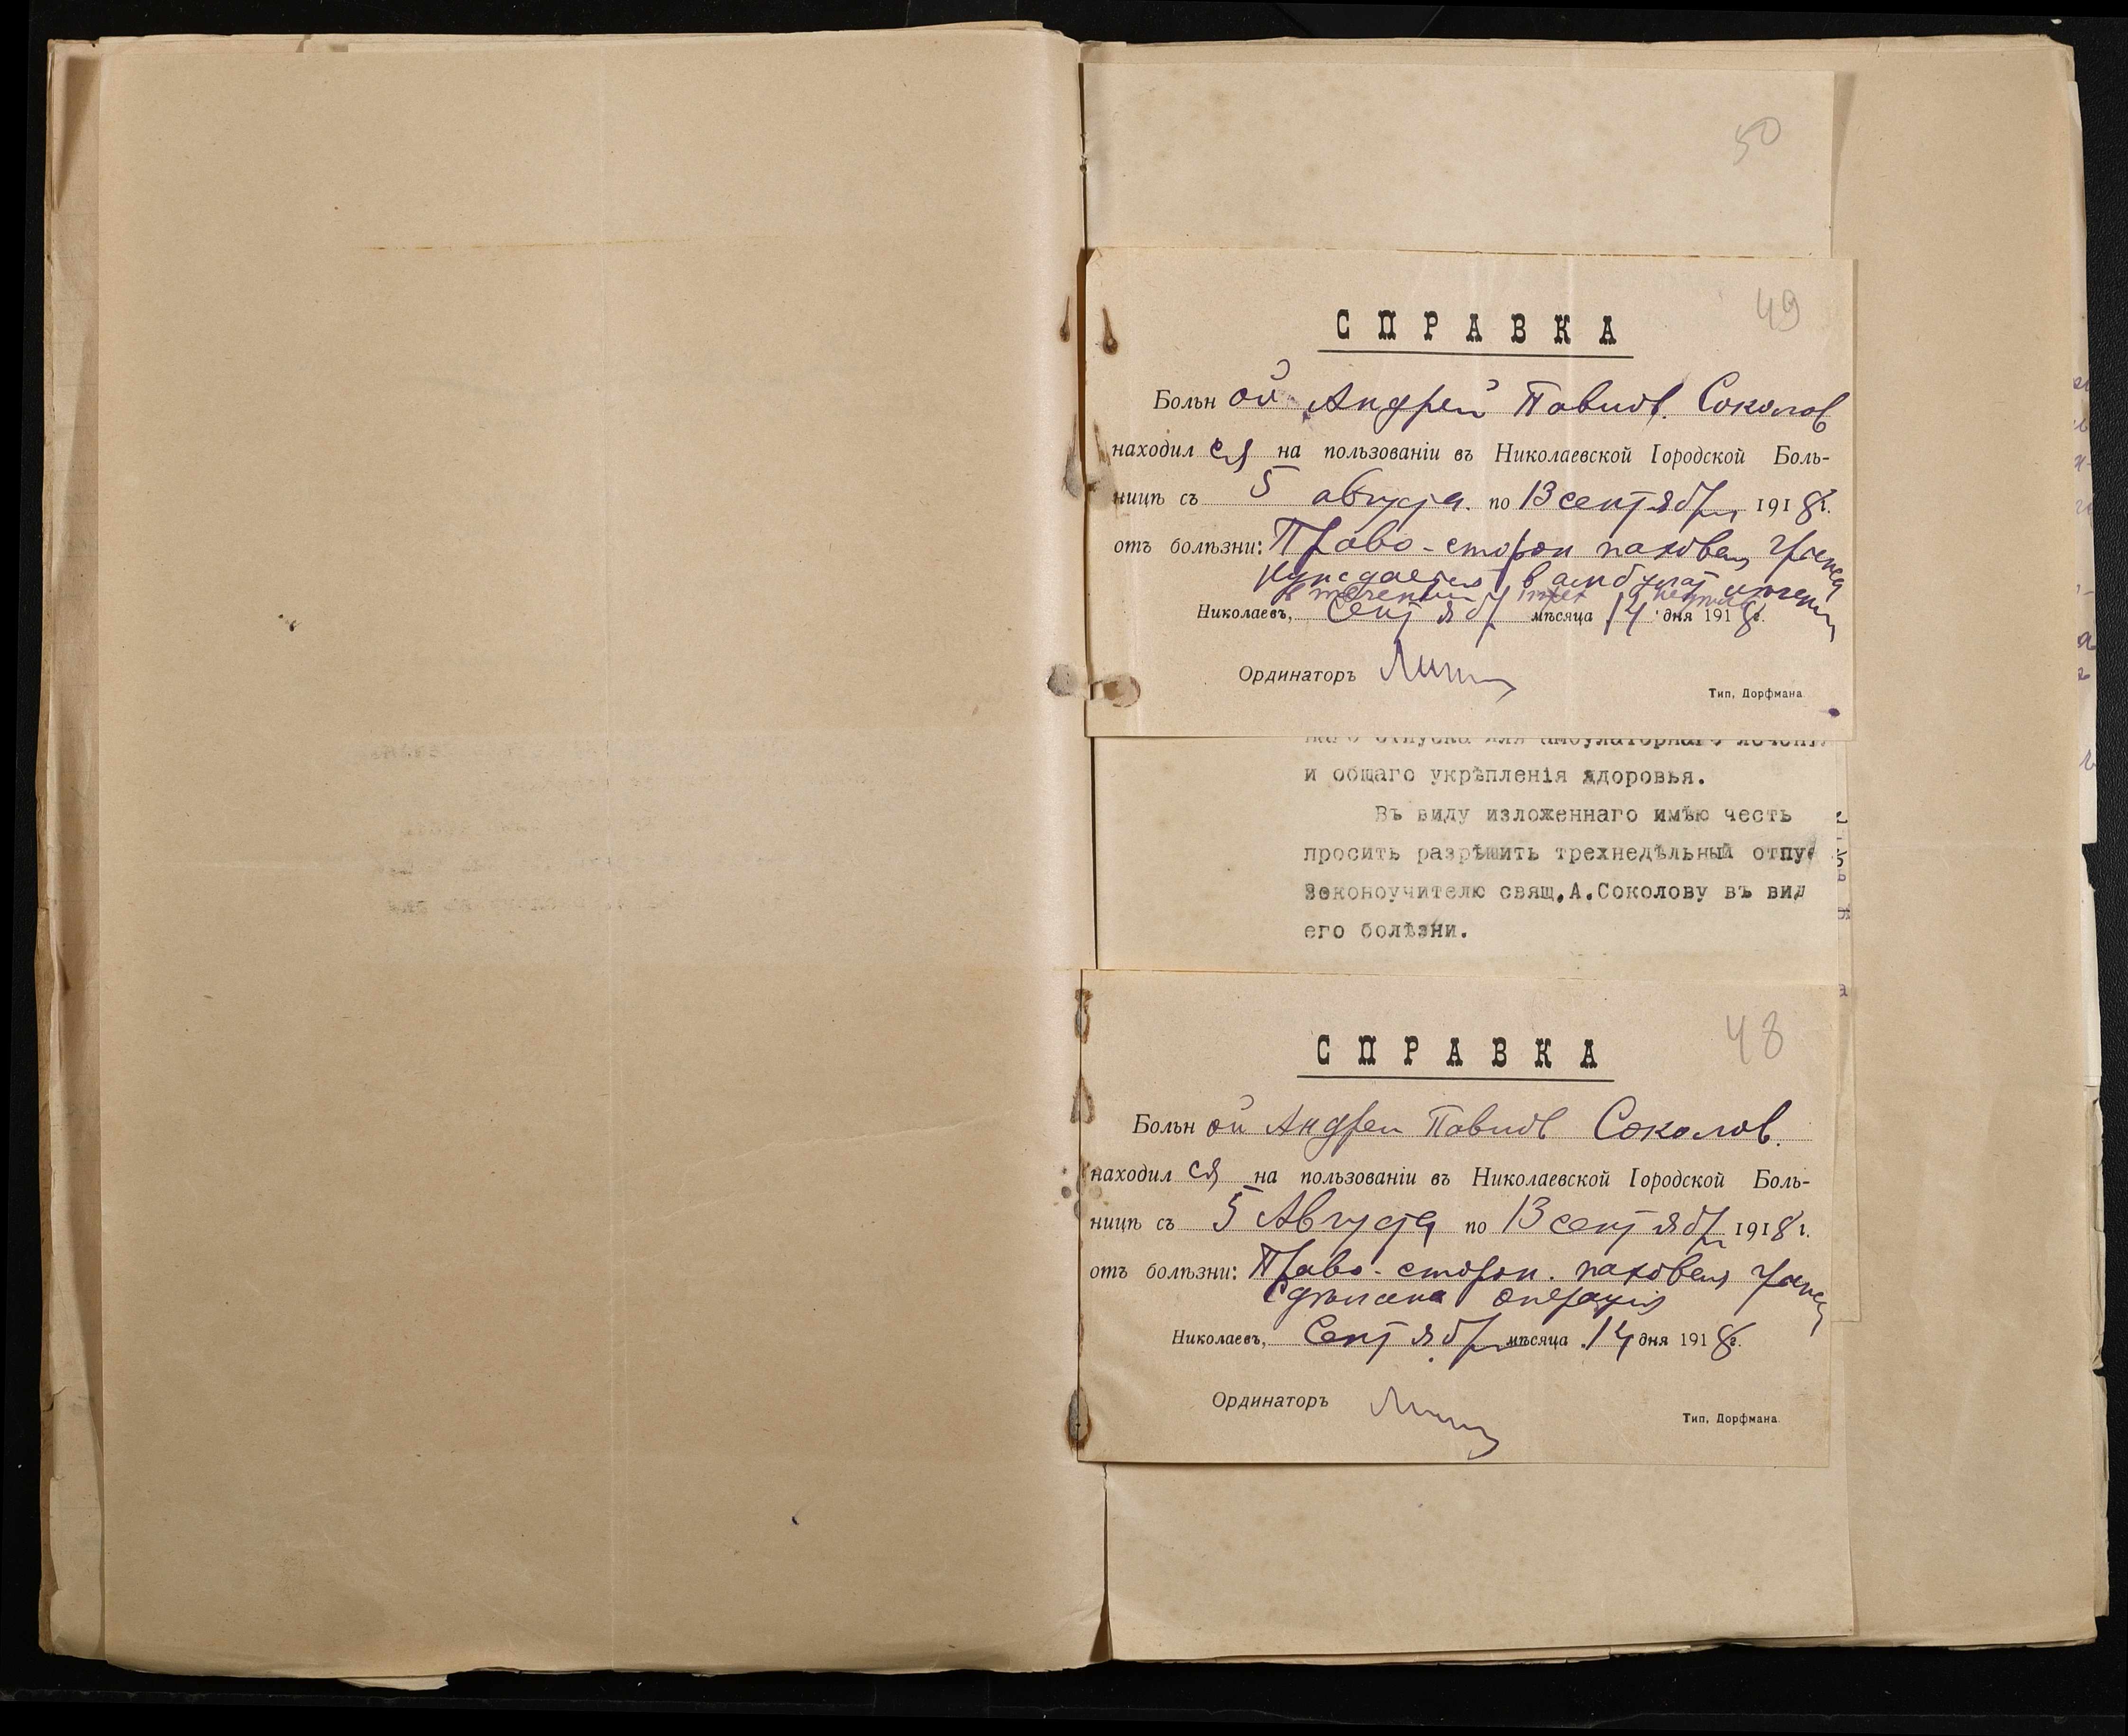 50
49
СПРАВКА
Больн ой Андрей Павлов. Соколов
находил ся на пользованіи въ Николаевской Городской Боль-
ницѣ съ 5 августа. по 13 сентября 1918 г.
отъ болѣзни: Право-сторон паховая грыжа
нуждается в амбулат лечении
в течении трех недель
Николаевъ, Сентябр мѣсяца 14 дня 1918 г.
Ординаторъ
Тип. Дорфмана
наго отпуска для амбулаторнаго лечені
и общаго укрѣпленія здоровья.
Въ виду изложеннаго имѣю честь
просить разрѣшить трехнедѣльный отпус
Законоучителю свящ.А.Соколову въ вид
его болѣзни.
48
СПРАВКА
Больн ой Андрей Павлов Соколов.
находил ся на пользованіи въ Николаевской Городской Боль-
ницѣ съ 5 Августа по 13 сентябр 1918 г.
отъ болѣзни: Право-сторон. паховая грыжа
Сдѣлана операція
Николаевъ, Сентябр мѣсяца 14 дня 1918 г.
Ординаторъ
Тип. Дорфмана